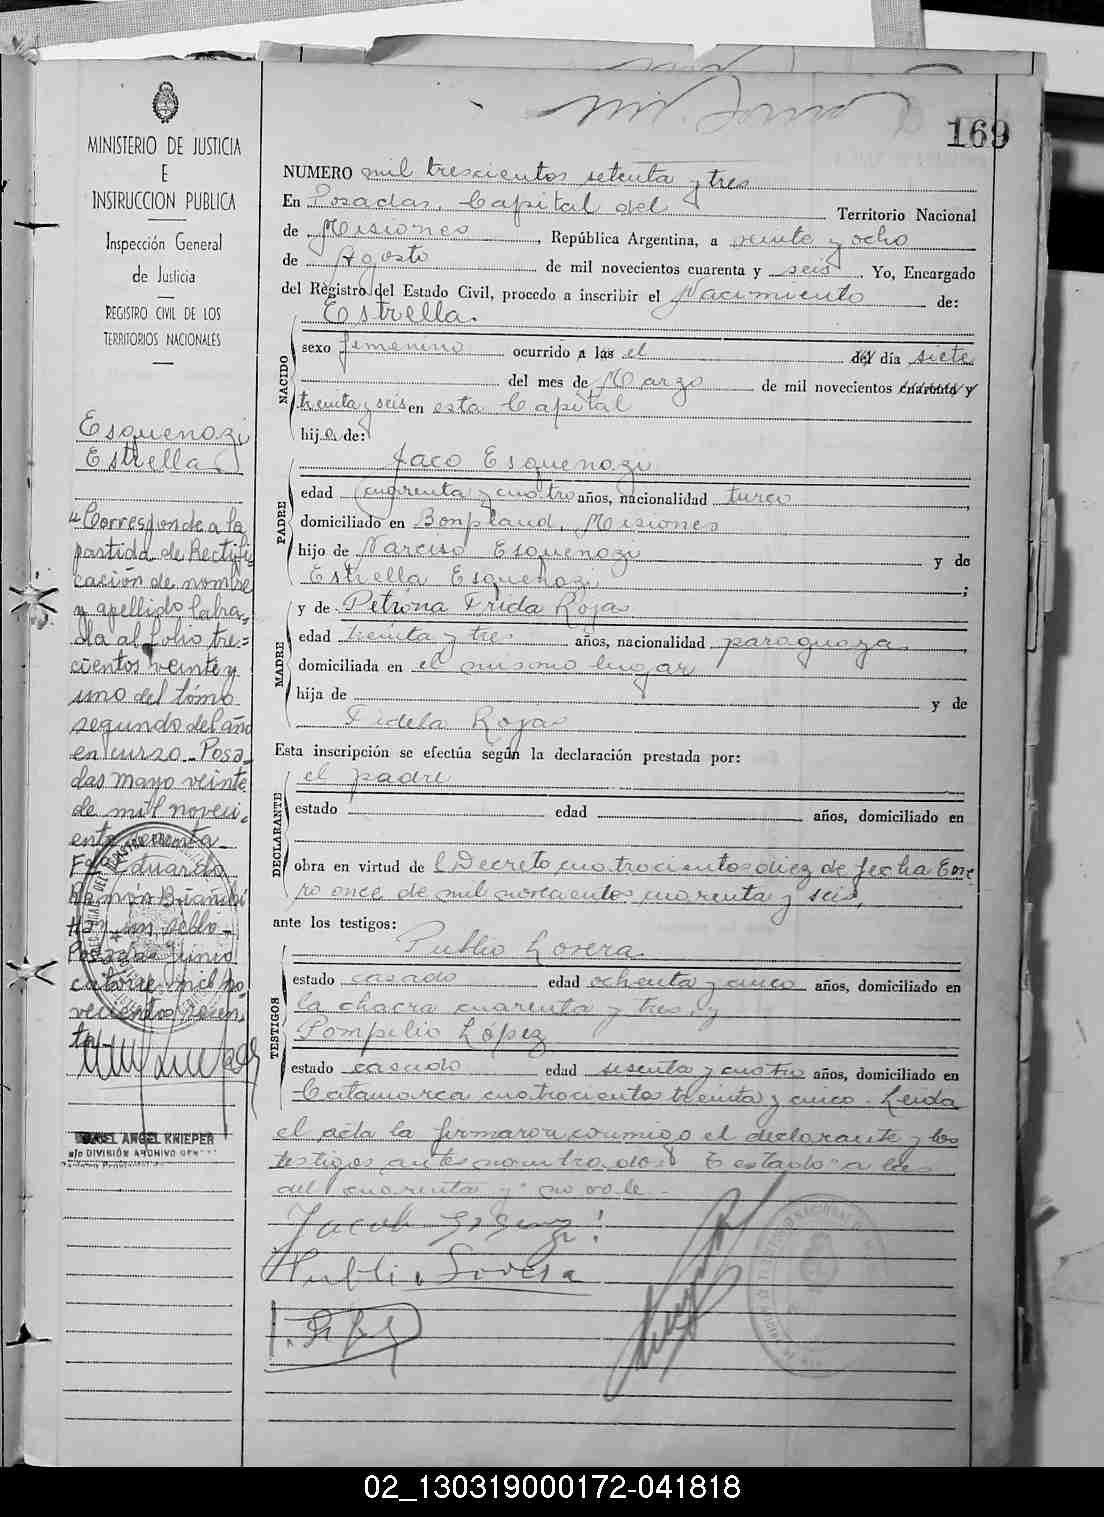 169
MINISTERIO DE JUSTICIA
E
INSTRUCCION PUBLICA
Inspección General
de Justicia
REGISTRO CIVIL DE LOS
TERRITORIOS NACIONALES
Esquenazi
Estrella
"Corresponde a la
partida de Rectifi
cación de nombre
y apellido labra=
da al folio tre=
cientos veinte y
uno del tómo
segundo del año
en curso. Posa_
das mayo veinte
de mil noveci_
ento sesenta_
Fdo Eduardo
Ramón
Hay un sello_
Posadas Junio
catorce mil no_
vecientos sesen_
ta_
ANGEL KNIEPER
a/c DIVISIÓN ARCHIVO
NUMERO mil trescientos setenta y tres
En Posadas, Capital del Territorio Nacional
de Misiones, República Argentina, a veinte y ocho
de Agosto de mil novecientos cuarenta y seis. Yo, Encargado
del Registro del Estado Civil, procedo a inscribir el Nacimiento de:
Estrella.
NACIDO
sexo femenino ocurrido a las el del día siete
del mes de Marzo de mil novecientos cuarenta y
treinta y seis en esta Capital
hija de:
PADRE
Jaco Esquenazi
edad cuarenta y cuatro años, nacionalidad turco,
domiciliado en Bonpland, Misiones
hijo de Narciso Esquenazi y de
Estrella Esquenazi;
MADRE
y de Petrona Frida Rojas
edad treinta y tres años, nacionalidad paraguaya,
domiciliada en el mismo lugar
hija de y de
Fidela Rojas
Esta inscripción se efectúa según la declaración prestada por:
DECLARANTE
el padre
estado edad años, domiciliado en
obra en virtud del Decreto cuatrocientos diez de fecha Ene
ro once de mil novecientos cuarenta y seis,
ante los testigos:
TESTIGOS
Publio Lovera.
estado casado edad ochenta y cinco años, domiciliado en
la chacra cuarenta y tres y
Pompilio López
estado casado edad sesenta y cuatro años, domiciliado en
Catamarca cuatrocientos treinta y cinco. Leida
el acta la firmaron conmigo el declarante y los
testigos antes nombrados. Testado "a las
del cuarenta y" no vale.-
Publio Lovera
02_130319000172-041818